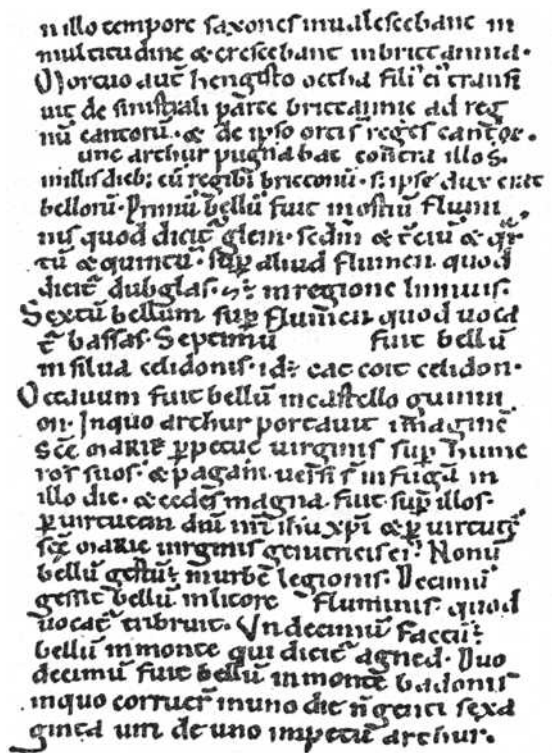 n illo tempore saxones inualescebant in
multitudine & crescebant in brittannia.
Mortuo aut̄ hengisto octha fili' ei' transi
uit de sinistrali parte brittannie ad reg
nū cantorū. & de ipso orti s̄ reges cantor̄.
unc arthur pugnabat contra illos.
in illis dieb; cū regib; brittonū. s; ipse dux erat
bellorū. Primū bellū fuit in ostiū flumi
nis quod dicit̄ glein. sc̄dm & t̄ciū & q̄r
tū & quintū. sup̄ aliud flumen. quod
dicit̄ dubglas. ÷ in regione linnuis.
Sextū bellum sup̄ flumen quod uoca
t̄ bassas. Septimū fuit bellū
in silua celidonis. id ÷ cat coit celidon.
Octauum fuit bellū in castello guinni
on. Inquo arthur portauit imaginē
scē mariē ꝑpetuę uirginis sup̄ hume
ros suos. & pagani uersi s̄ in fugā in
illo die. & cedes magna fuit sup̄ illos.
ꝑ uirtutem dn̄i nr̄i ih̄u xp̄i & ꝑ uirtutē
scē mariē uirginis genitricis ei'. Nonū
bellū gestū ÷ in urbe legionis. Decimū
gessit bellū in litore fluminis. quod
uocat̄ tribruit. Undecimū factū ÷
bellū in monte qui dicit̄ agned. Duo
decimū fuit bellū in monte badonis
inquo corruer̄ in uno die n̄genti sexa
ginta uiri de uno impetu arthur.